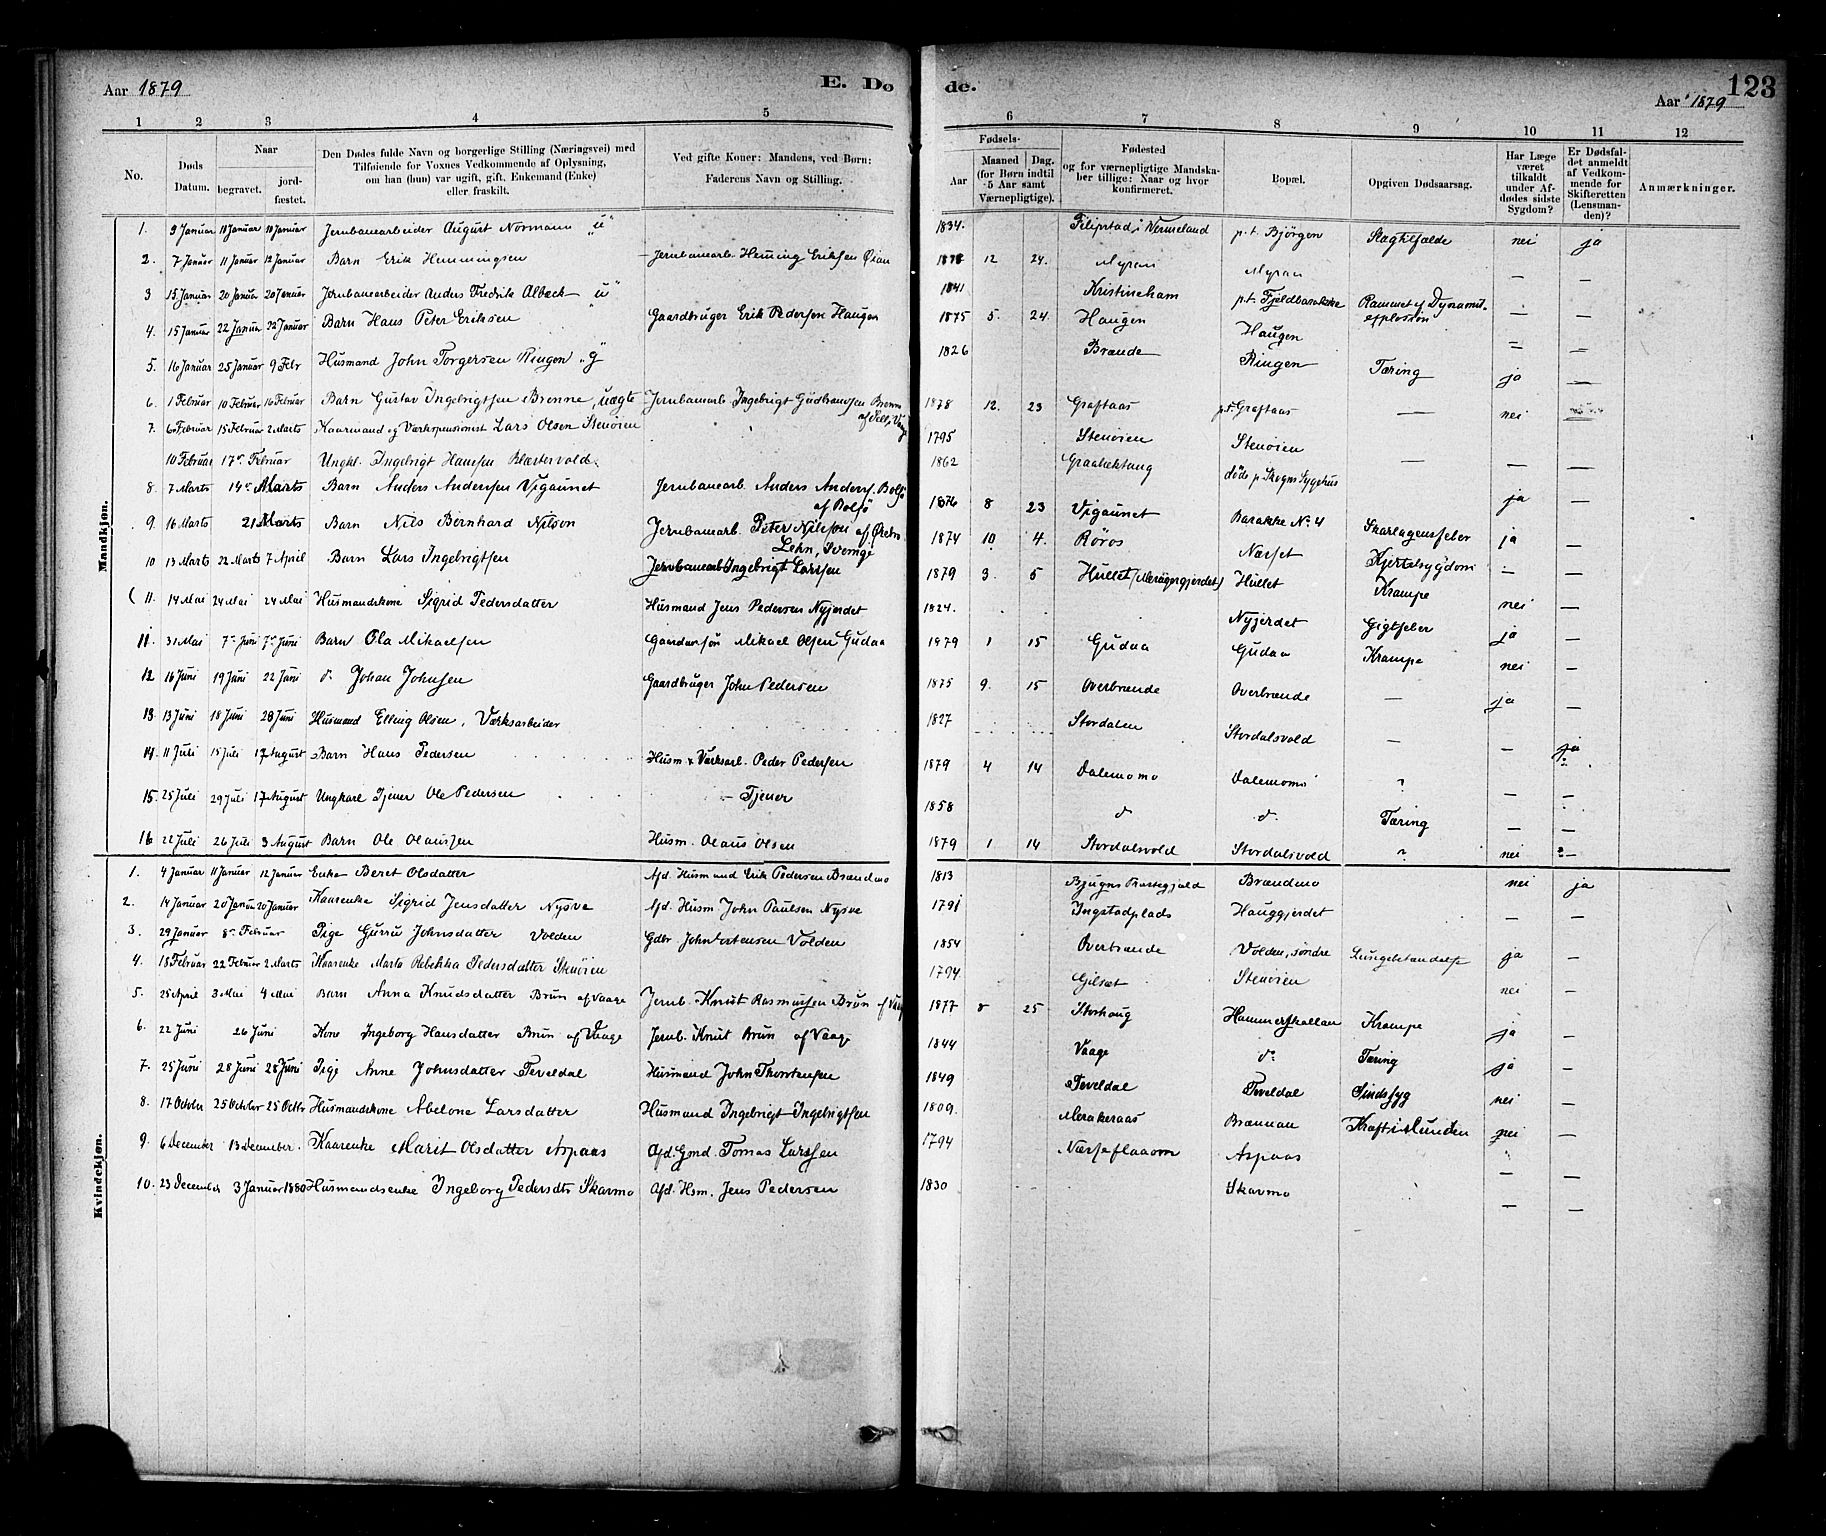 Aar 1879 E. Dø
de. 123
Aar 1879
1 2 3 4 5 6 7 8 9 10 11 12
No. Døds Datum. Naar begravet. jordfæstet. Den Dødes fulde Navn og borgerlige Stilling (Næringsvei) med Tilføiende for Voxnes Vedkommende af Oplysning, om han (hun) var ugift, gift, Enkemand (Enke) eller fraskilt. Ved gifte Koner: Mandens, ved Børn: Faderens Navn og Stilling. Fødsels- Aar Maaned Dag. (for Børn indtil 5 Aar samt Værnepligtige). Fødested og for værnepligtige Mandskaber tillige: Naar og hvor konfirmeret. Bopæl. Opgiven Dødsaarsag. Har Læge været tilkaldt under Afdødes sidste Sygdom? Er Dødsfaldet anmeldt af Vedkommende for Skifteretten (Lensmanden)? Anmærkninger.
Mandkjøn.
1. 9 Januar 18 Januar 18 Januar Jernbanearbeider August Normann "u" 1834. Filipstad i Vermeland p.t. Bjørgen Slagtilfælde nei ja
2. 7 Januar 11 Januar 12 Januar Barn Erik Hemmingsen Jernbanearb. Heming Eriksen Øian 1878 12 24. Myran Myran — —
3 15 Januar 20 Januar 20 Januar Jernbanearbeider Anders Fredrik Albeck "u" 1841 Kristineham p.t. Fjeldbarakke Rammet af Dynamit-explosion — —
4. 15 Januar 22 Januar 22 Januar Barn Hans Peter Eriksen Gaardbruger Erik Pedersen Haugen 1875 5. 24. Haugen Haugen — —
5. 16 Januar 25 Januar 9 Febr Husmand John Torgersen Ringen "g" 1826 Brænde Ringen Tæring ja —
6. 1 Februar 10 Februar 16 Februar Barn Gustav Ingebrigtsen Brenne, uægte Jernbanearb. Ingebrigt Gudbrandsen Brenn af Sell, Vaage 1878 12. 23 Graftaas p.t. Graftaas — nei
7. 6 Februar 15 Februar 2 Marts Kaarmand og Værkspensionist Lars Olsen Stenøien 1795 Stenøien Stenøien
10 Februar 17 Februar Ungkl. Ingebrigt Hansen Klæstervold 1862 Graabæktung døde p. Skogns Sygehus — — —
8. 7 Marts 14 Marts Barn Anders Andersen Vigaunet Jernbanearb. Anders Anders. Bolsø af Bolsø 1876 8 23 Vigaunet Barakke No. 4 Skarlagensfeber ja —
9. 16 Marts 21 Marts Barn Nils Bernhard Nilson Jernbanearb. Peter Nilsson af Ørebro Lehn, Sverrige 1874 10 4. Røros Næsset Kjertelsygdom ja —
10 13 Marts 22 Marts 7 April Barn Lars Ingebrigtsen Jernbanearb Ingebrigt Larssen 1879 3. 5 Hullet (Meraagergjerdet) Hullet Krampe — —
(11. 14 Mai 24 Mai 24 Mai Husmandskone Sigrid Pedersdatter Husmand Jens Pedersen Nyjerdet 1824. Nyjerdet Gigtfeber nei —
11. 31 Mai 7 Juni 7 Juni Barn Ola Mikaelsen Gaardmansøn Mikael Olsen Gudaa 1879 1 15 Gudaa Gudaa Krampe ja —
12 16 Juni 19 Juni 22 Juni do Johan Johnsen Gaardbruger John Pedersen 1875 9. 15 Overbrænde Overbrænde — nei —
13 13 Juni 18 Juni 28 Juni Husmand Elling Olsen, Værksarbeider 1827 Stordalen Stordalsvold — ja —
14. 11 Juli 15 Juli 17 August Barn Hans Pedersen Husm & Værksarb. Peder Pedersen 1879 4 14 Dalemomo Dalemomo " — ja
15. 25 Juli 29 Juli 17 August Ungkarl Tjener Ole Pedersen — Tjener 1858 do do. Tæring — —
16 22 Juli 26 Juli 3 August Barn Ole Olaussen Husm. Olaus Olsen 1879 1 14 Stordalsvold Stordalsvold " nei —
Kvindekjøn.
1. 4 Januar 11 Januar 12 Januar Enke Beret Olsdatter Afd. Husmand Erik Pedersen Brændmo 1813 Bjugns Præstegjæld Brændmo nei ja
2. 14 Januar 20 Januar 20 Januar Kaarenke Sigrid Jensdatter Nysve Afd. Husm John Paulsen Nysve 1791 Ingstadplads Hauggjerdet — —
3. 29 Januar 8 Februar Pige Guruu Johnsdatter Volden Gdbr John Volden 1854 Overbrænde Volden, søndre Lungebetændelse ja —
4. 18 Februar 22 Februar 2 Marts Kaarenke Marta Rebekka Pedersdatter Stenøien 1794. Gilsæt Stenøien nei —
5. 25 April 3 Mai 4 Mai Barn Anna Knudsdatter Brun af Vaage Jernb. Knut Rasmussen Brun af Vaage 1877 8 25 Storhaug Hammerskallan Krampe ja —
6. 22 Juni 26 Juni Kone Ingeborg Hansdatter Brun af Vaage Jernb. Knut Brun af Vaage 1844 Vaage do Tæring ja —
7. 25 Juni 28 Juni 28 Juni Pige Anne Johnsdatter Teveldal Husmand John Thorstensen 1849 Teveldal Teveldal Sindssyg nei —
8. 17 Octobr 25 October 25 Octbr Husmandskone Abelone Larsdatter Husmand Ingebrigt Ingebrigtsen 1809. Merakeraas Brannan Kræft i Munden nei —
9. 6 December 13 December. Kaarenke Marit Olsdatter Aspaas Afd. Gmd. Tomas Larssen 1794 Næsseflaaom Aspaas — —
10. 23 December 3 Januar 1880 Husmandsenke Ingeborg Pedersdtr Skavmo Afd. Hsm. Jens Pedersen 1830 Skavmo — —